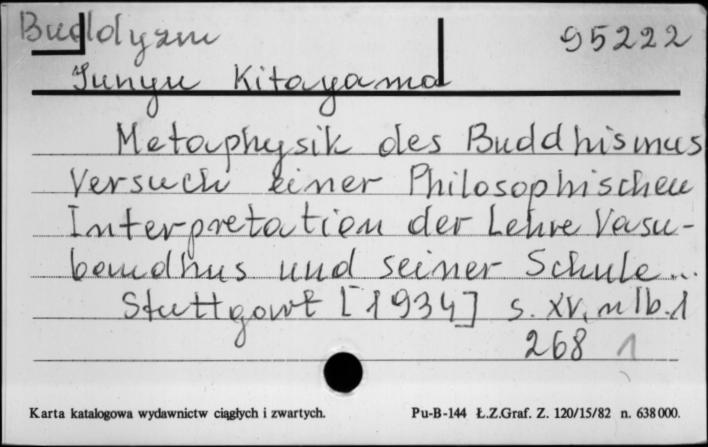 Buddyzm 95222
Junyu Kitayama
Metaphysik des Buddhismus
Versuch einer Philosophischen
Interpretation der Lehre Vasu-
bandhus und seiner Schule...
Stuttgart [1934] s. XV, nlb. 1
268 1
Karta katalogowa wydawnictw ciągłych i zwartych. Pu-B-144 Ł.Z.Graf. Z. 120/15/82 n. 638000.